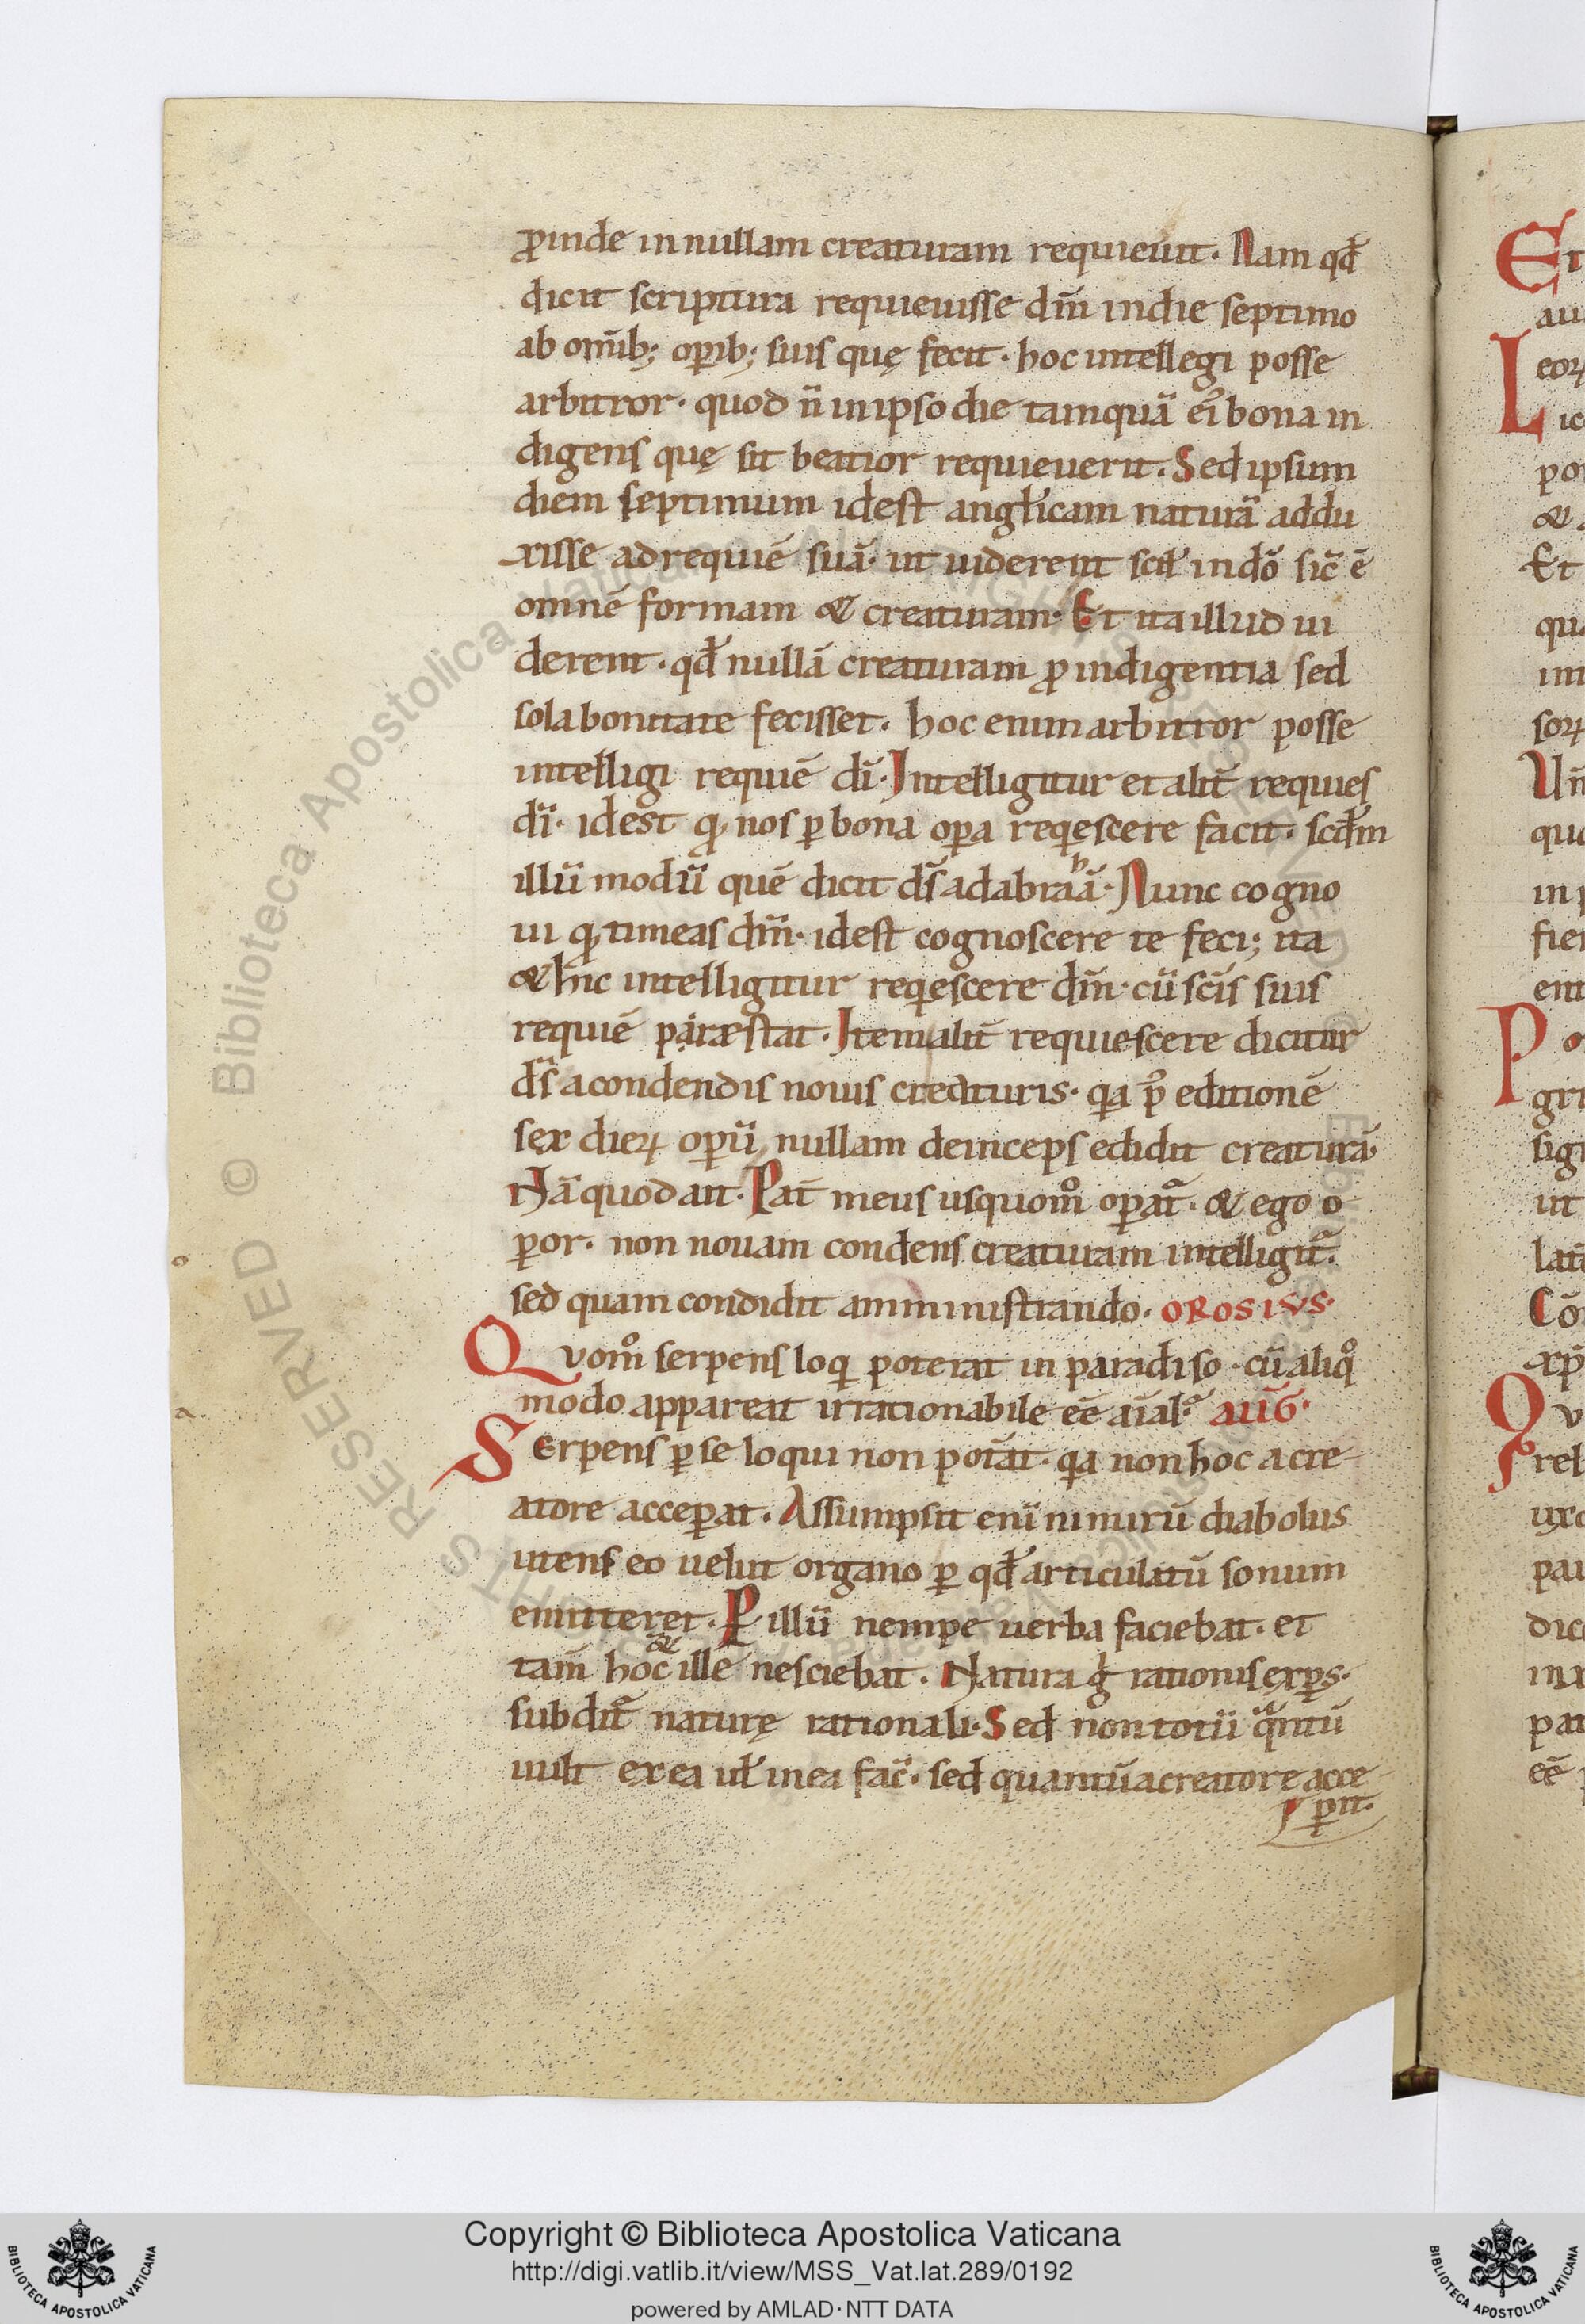 ꝓinde in nullam creaturam requieuit. Nam qđ
dicit scriptura requieuisse dm̄ in die septimo
ab omīb; oꝑib; suis quę fecit. hoc intellegi posse
arbitror. quod n̄ in ipso die tamquā ei bona in
digens quę sit beatior requieuerit. Sed ipsum
diem septimum idest angłicam naturā addu
xisse ad requiē suā. ut uiderent scił in dō sic̄ ē
omnē formam & creaturam. Et ita illud ui
derent. qđ nullā creaturam ꝓ indigentia sed
sola bonitate fecisset. hoc enim arbitror posse
intelligi requiē dī. Intelligitur et alit̄ requies
dī. idest ꝙ nos ꝑ bona oꝑa reqescere facit. scđm
illū modū quē dicit ds̄ ad abraħā. Nunc cogno
ui ꝙ timeas dm̄. idest cognoscere te feci; ita
& hic intelligitur reqescere dm̄. cū scīs suis
requiē paræstat. Item alit̄ requiescere dicitur
ds̄ a condendis nouis creaturis. qa p̄ editionē
sex dieꝝ oꝑū nullam deinceps edidit creaturā.
Nā quod ait. Pat̄ meus usquom̊ oꝑat̄. & ego o
ꝑor. non nouam condens creaturam intelligit̄.
sed quam condidit amministrando. OROSIVS.
Qvom̊ serpens loqi poterat in paradiso. cū aliq̊
modo appareat irrationabile eē aīal. AUḠ.
Serpens ꝑ se loqui non pot̄at. qa non hoc a cre-
atore acceꝑat. Assumpsit enī nimirū diabolus
utens eo uelut organo ꝑ qđ articulatū sonum
emitteret. P illū nempe uerba faciebat. et
tam̄ hoc & ille nesciebat. Natura g̊ rationis exꝑs.
subdit̄ naturę rationali. Sed non totū qntū
uult ex ea uł in ea fac̄. sed quantū a creatore acce
ꝑit.
Copyright © Biblioteca Apostolica Vaticana
http://digi.vatlib.it/view/MSS_Vat.lat.289/0192
powered by AMLAD·NTT DATA